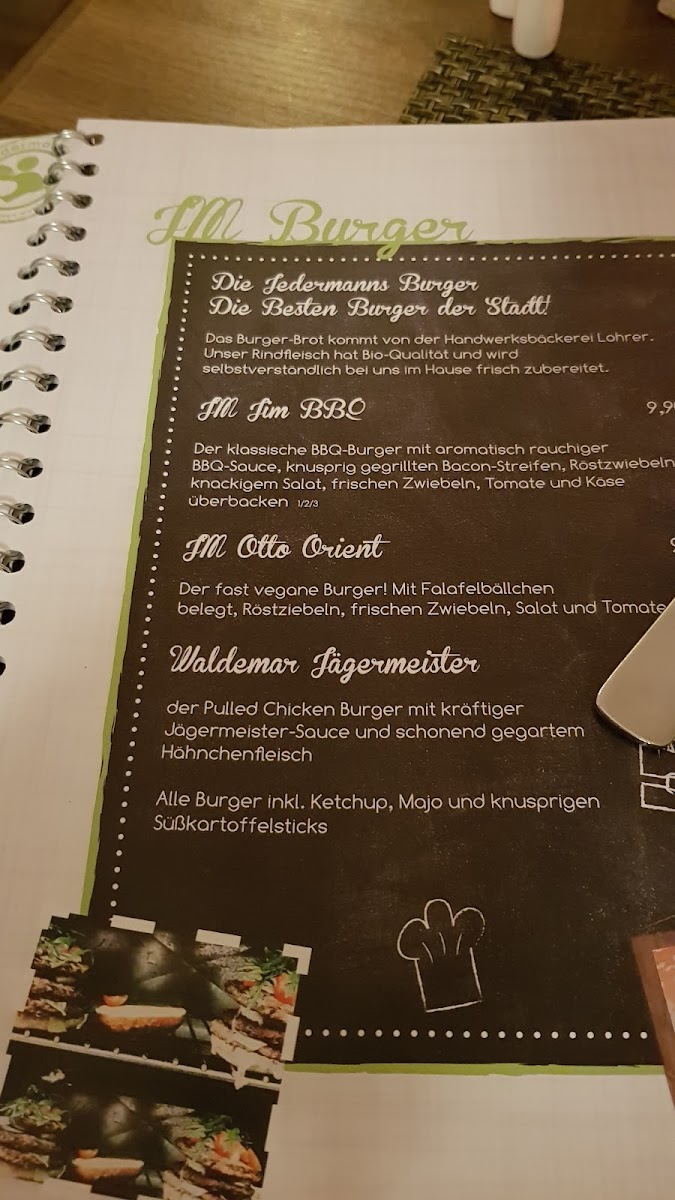 JM Burger
Die Jedermanns Burger
Die Besten Burger der Stadt!
Das Burger-Brot kommt von der Handwerksbäckerei Lohrer.
Unser Rindfleisch hat Bio-Qualität und wird
selbstverständlich bei uns im Hause frisch zubereitet.
JM Jim BBQ
9,9
Der klassische BBQ-Burger mit aromatisch rauchiger
BBQ-Sauce, knusprig gegrillten Bacon-Streifen, Röstzwiebeln
knackigem Salat, frischen Zwiebeln, Tomate und Käse
überbacken 1/2/3
JM Otto Orient
Der fast vegane Burger! Mit Falafelbällchen
belegt, Röstziebeln, frischen Zwiebeln, Salat und Tomate
Waldemar Jägermeister
der Pulled Chicken Burger mit kräftiger
Jägermeister-Sauce und schonend gegartem
Hähnchenfleisch
Alle Burger inkl. Ketchup, Majo und knusprigen
Süßkartoffelsticks